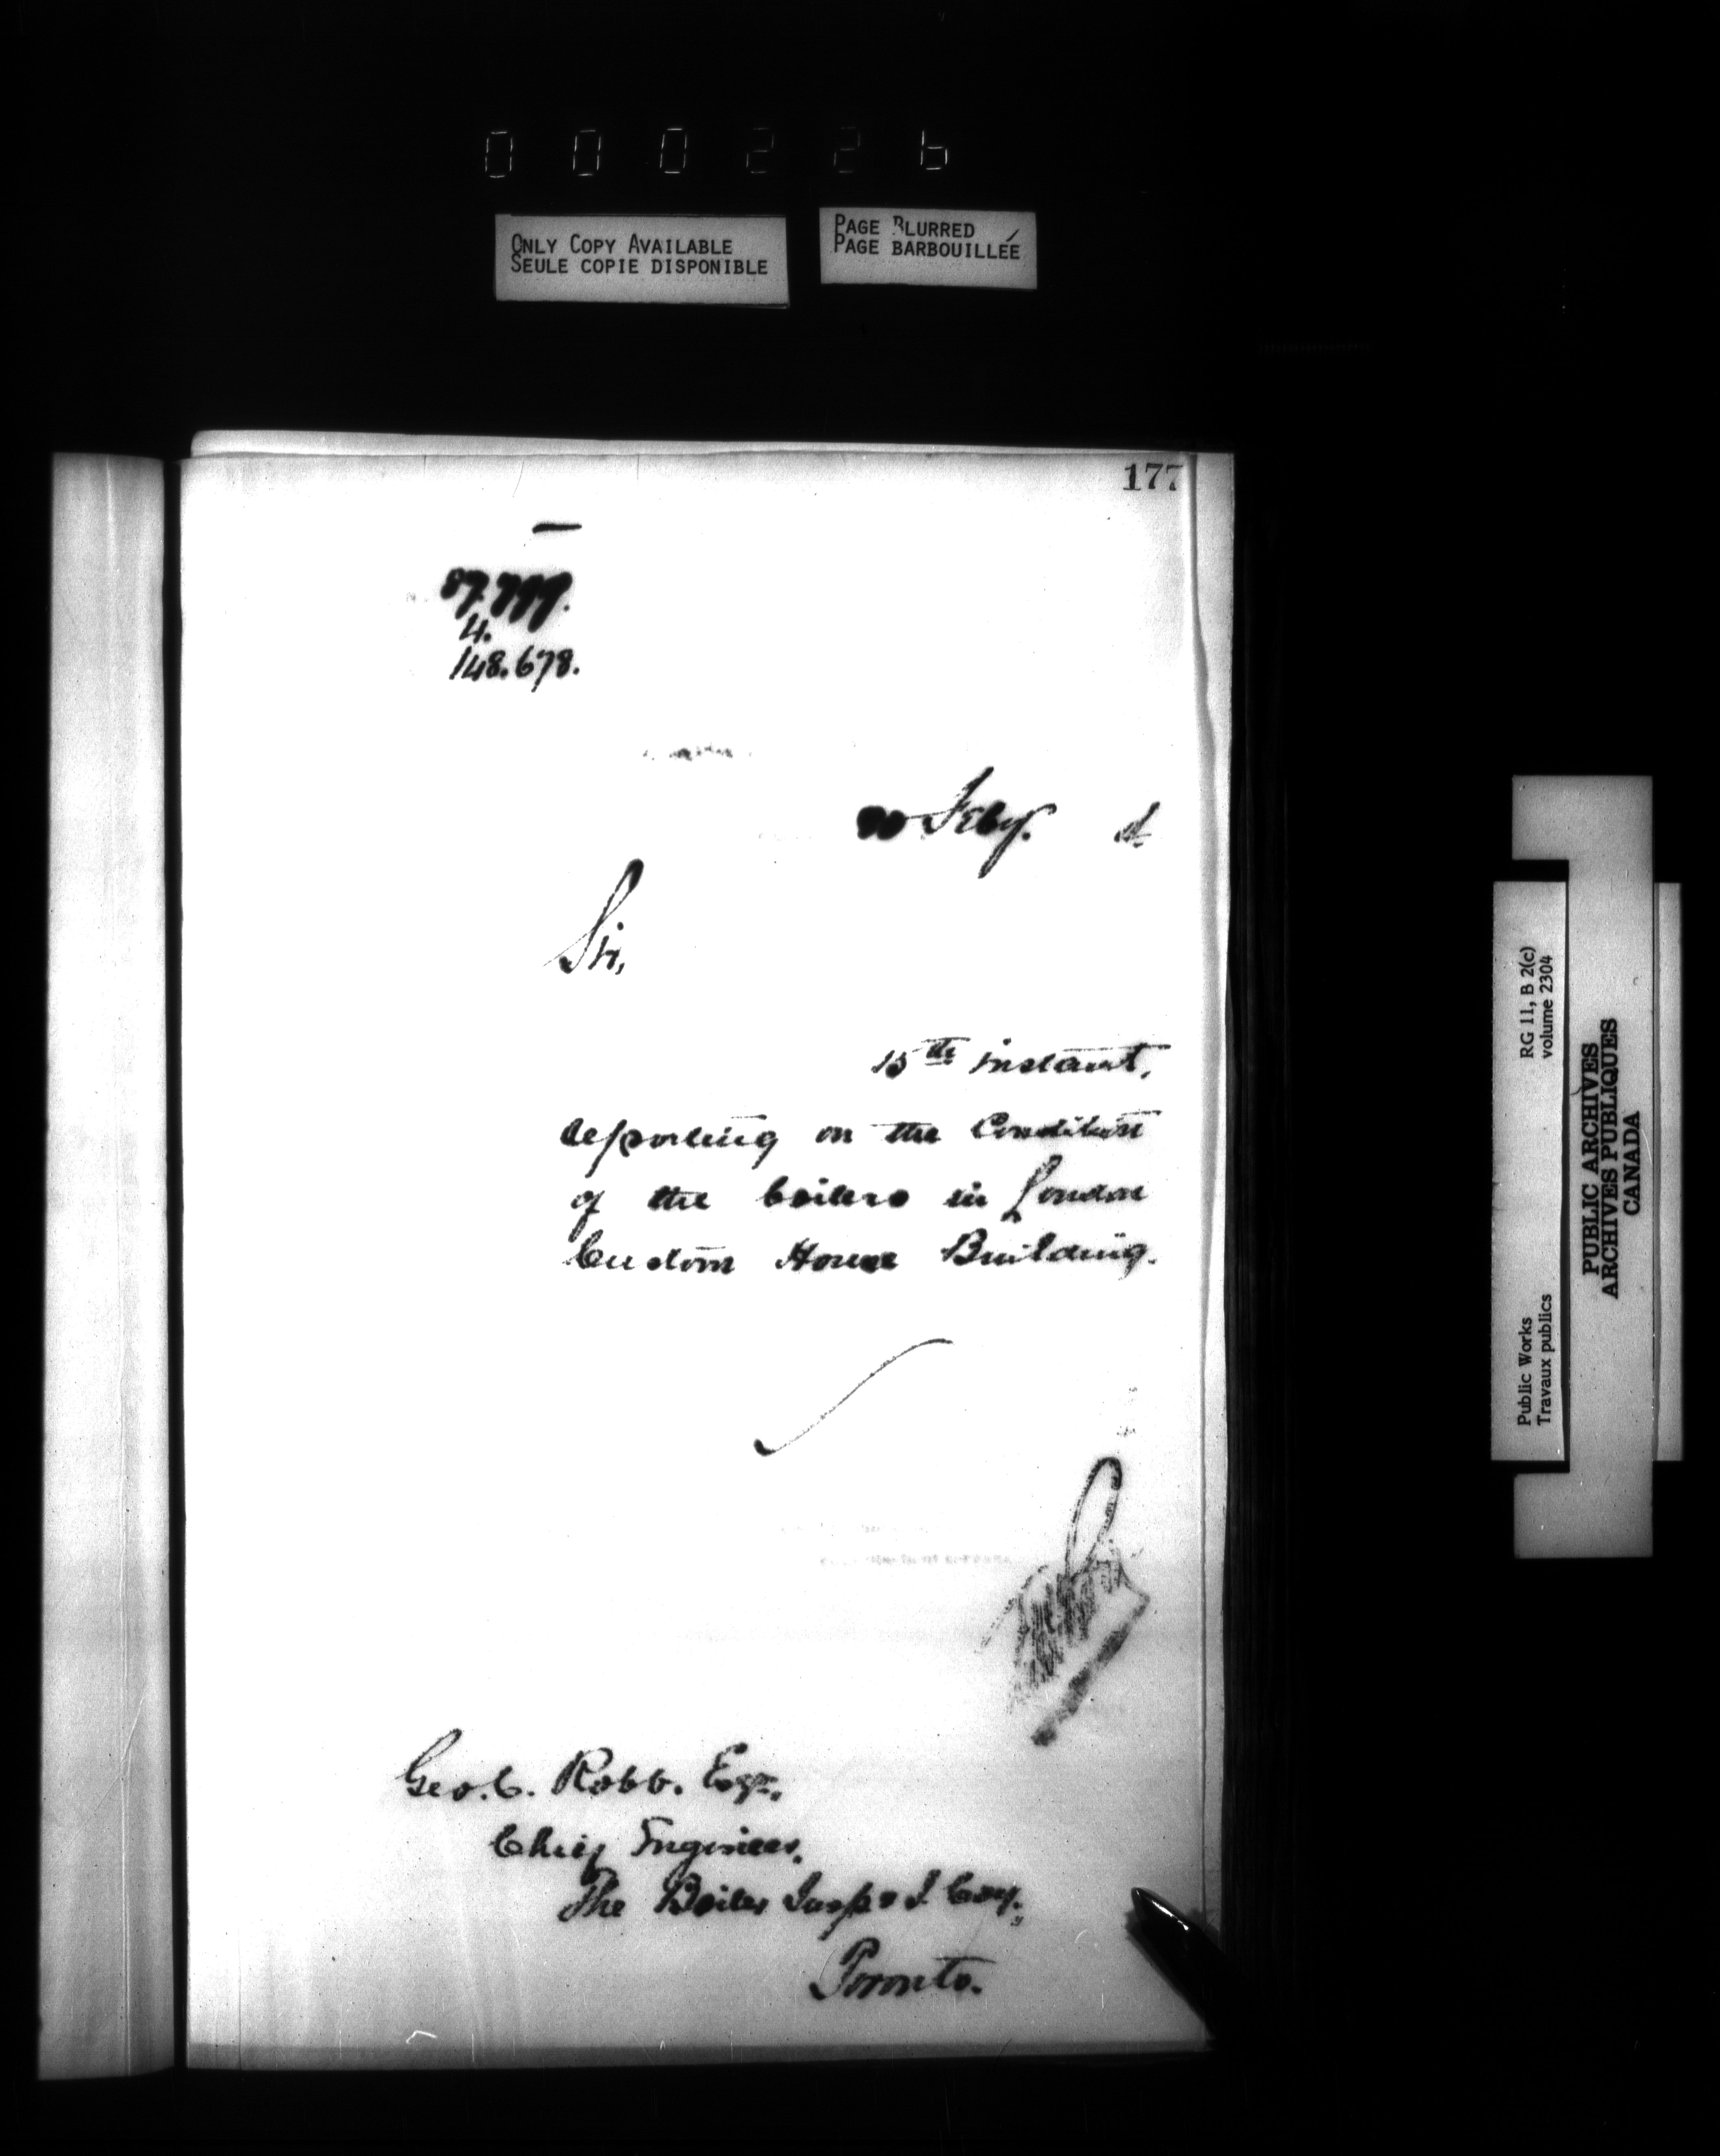 000226
ONLY COPY AVAILABLE
SEULE COPIE DISPONIBLE
PAGE BLURRED
PAGE BARBOUILLÉE
177
4.
148.678.
20 Feby.
Sir,
15th instant,
reporting on the Condition
of the boilers in London
Custom House Building.
Geo. C. Robb. Esqr.,
Chief Engineer,
The Boiler Insp & I. Coy.,
Toronto.
RG 11, B 2(c)
volume 2304
Public Works
Travaux publics
PUBLIC ARCHIVES
ARCHIVES PUBLIQUES
CANADA